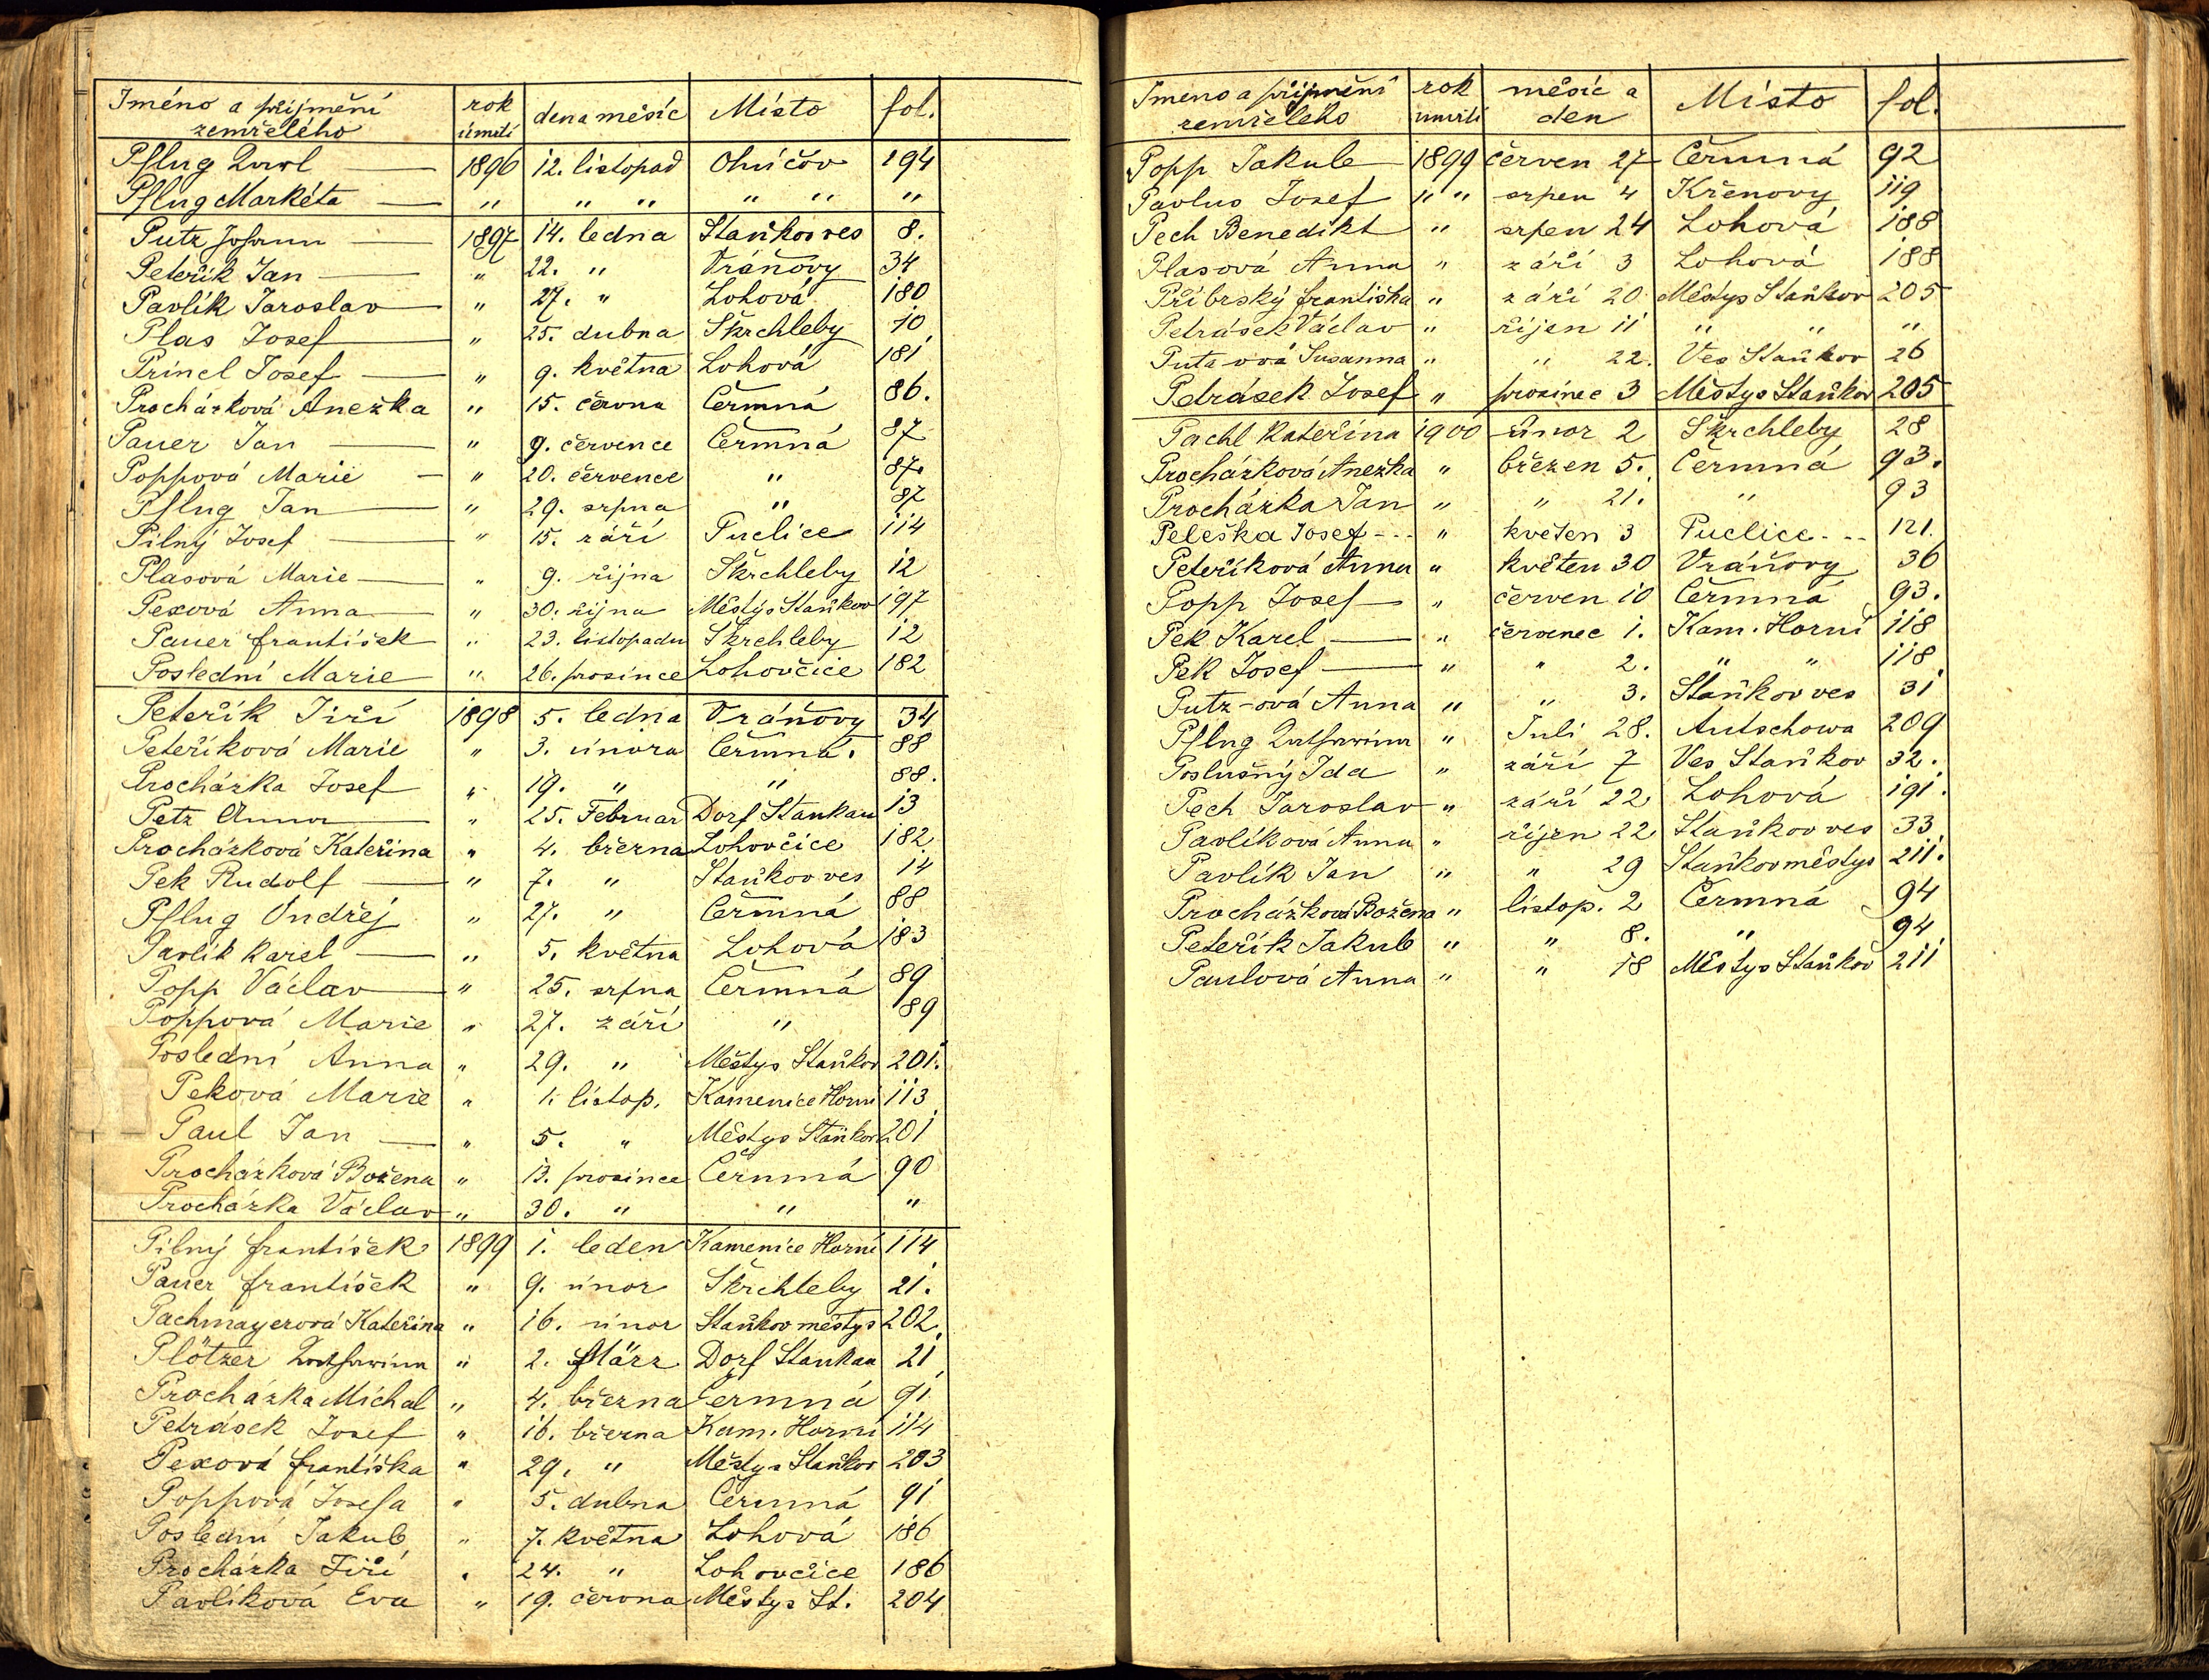 Jméno a příjmení zemřelého rok úmrtí den a měsíc Místo fol.
Pflug Karl — 1896 12. listopad Ohučov 194
Pflug Markéta — " " " " " "
Putz Johann — 1897 14. ledna Staňkov ves 8.
Peteřík Jan — " 22. " Vránovy 34
Pavlík Jaroslav — " 27. " Lohová 180
Plas Josef — " 25. dubna Škrchleby 10
Princl Josef — " 9. května Lohová 181
Procházková Anežka " 15. června Čermná 86.
Pauer Jan — " 9. července Čermná 87
Poppová Marie — " 20. července " 87.
Pflug Jan — " 29. srpna " 87
Pilný Josef — " 15. září Puclice 114
Plasová Marie — " 9. října Škrchleby 12
Pexová Anna — " 30. října Městys Staňkov 197
Pauer František " 23. listopadu Škrchleby 12
Poslední Marie " 26. prosince Lohovčice 182
Peteřík Jiří 1898 5. ledna Vráňovy 34
Peteříková Marie " 3. února Čermná. 88
Procházka Josef " 19. " " 88.
Petz Anna — " 25. Februar Dorf Stankau 13
Procházková Kateřina " 4. března Lohovčice 182
Pek Rudolf — " 7. " Staňkov ves 14
Pflug Ondřej " 27. " Čermná 88
Pavlík Karel — " 5. května Lohová 183
Popp Václav — " 25. srpna Čermná 89
Poppová Marie " 27. září " 89
Poslední Anna " 29. " Městys Staňkov 201.
Peková Marie " 1. listop. Kamenice Horní 113
Paul Jan — " 5. " Městys Staňkov 201
Procházková Božena " 13. prosince Čermná 90
Procházka Václav " 30. " " "
Pilný František 1899 1. leden Kamenice Horní 114
Pauer František " 9. únor Škrchleby 21.
Pachmayerová Kateřina " 16. únor Staňkov městys 202.
Plötzer Katharina " 2. März Dorf Stankau 21
Procházka Michal " 4. března Čermná 91
Petrásek Josef " 16. března Kam. Horní 114
Pexová Františka " 29. " Městys Staňkov 203
Poppová Josefa " 5. dubna Čermná 91
Poslední Jakub " 7. května Lohová 186
Procházka Jiří " 24. " Lohovčice 186
Pavlíková Eva " 19. června Městys St. 204
Jméno a příjmení zemřelého rok úmrtí měsíc a den Místo fol.
Popp Jakub — 1899 červen 27 Čermná 92
Pavlus Josef " " srpen 4 Křenovy 119
Pech Benedikt " srpen 24 Lohová 188
Plasová Anna " září 3 Lohová 188
Příbrský Františka " září 20 Městys Staňkov 205
Petrásek Václav " říjen 11 " " "
Putz-ová Susanna " " 22. Ves Staňkov 26
Petrásek Josef " prosinec 3 Městys Staňkov 205
Pachl Kateřina 1900 únor 2 Škrchleby 28
Procházková Anežka " březen 5. Čermná 93.
Procházka Jan " " 21. " 93
Peleška Josef - - - " květen 3 Puclice - - - 121.
Peteříková Anna " květen 30 Vráňovy 36
Popp Josef — " červen 10 Čermná 93.
Pek Karel — " červenec 1. Kam. Horní 118
Pek Josef — " " 2. " " 118
Putz-ová Anna " " 3. Staňkov ves 31
Pflug Katharina " Juli 28. Autschowa 209
Poslušný Ida " září 7 Ves Staňkov 32.
Pech Jaroslav " září 22 Lohová 191.
Pavlíková Anna " říjen 22 Staňkov ves 33
Pavlík Jan " " 29 Staňkov městys 211.
Procházková Božena " listop. 2 Čermná 94
Peteřík Jakub " " 8. " 94
Paulová Anna " " 18 Městys Staňkov 211